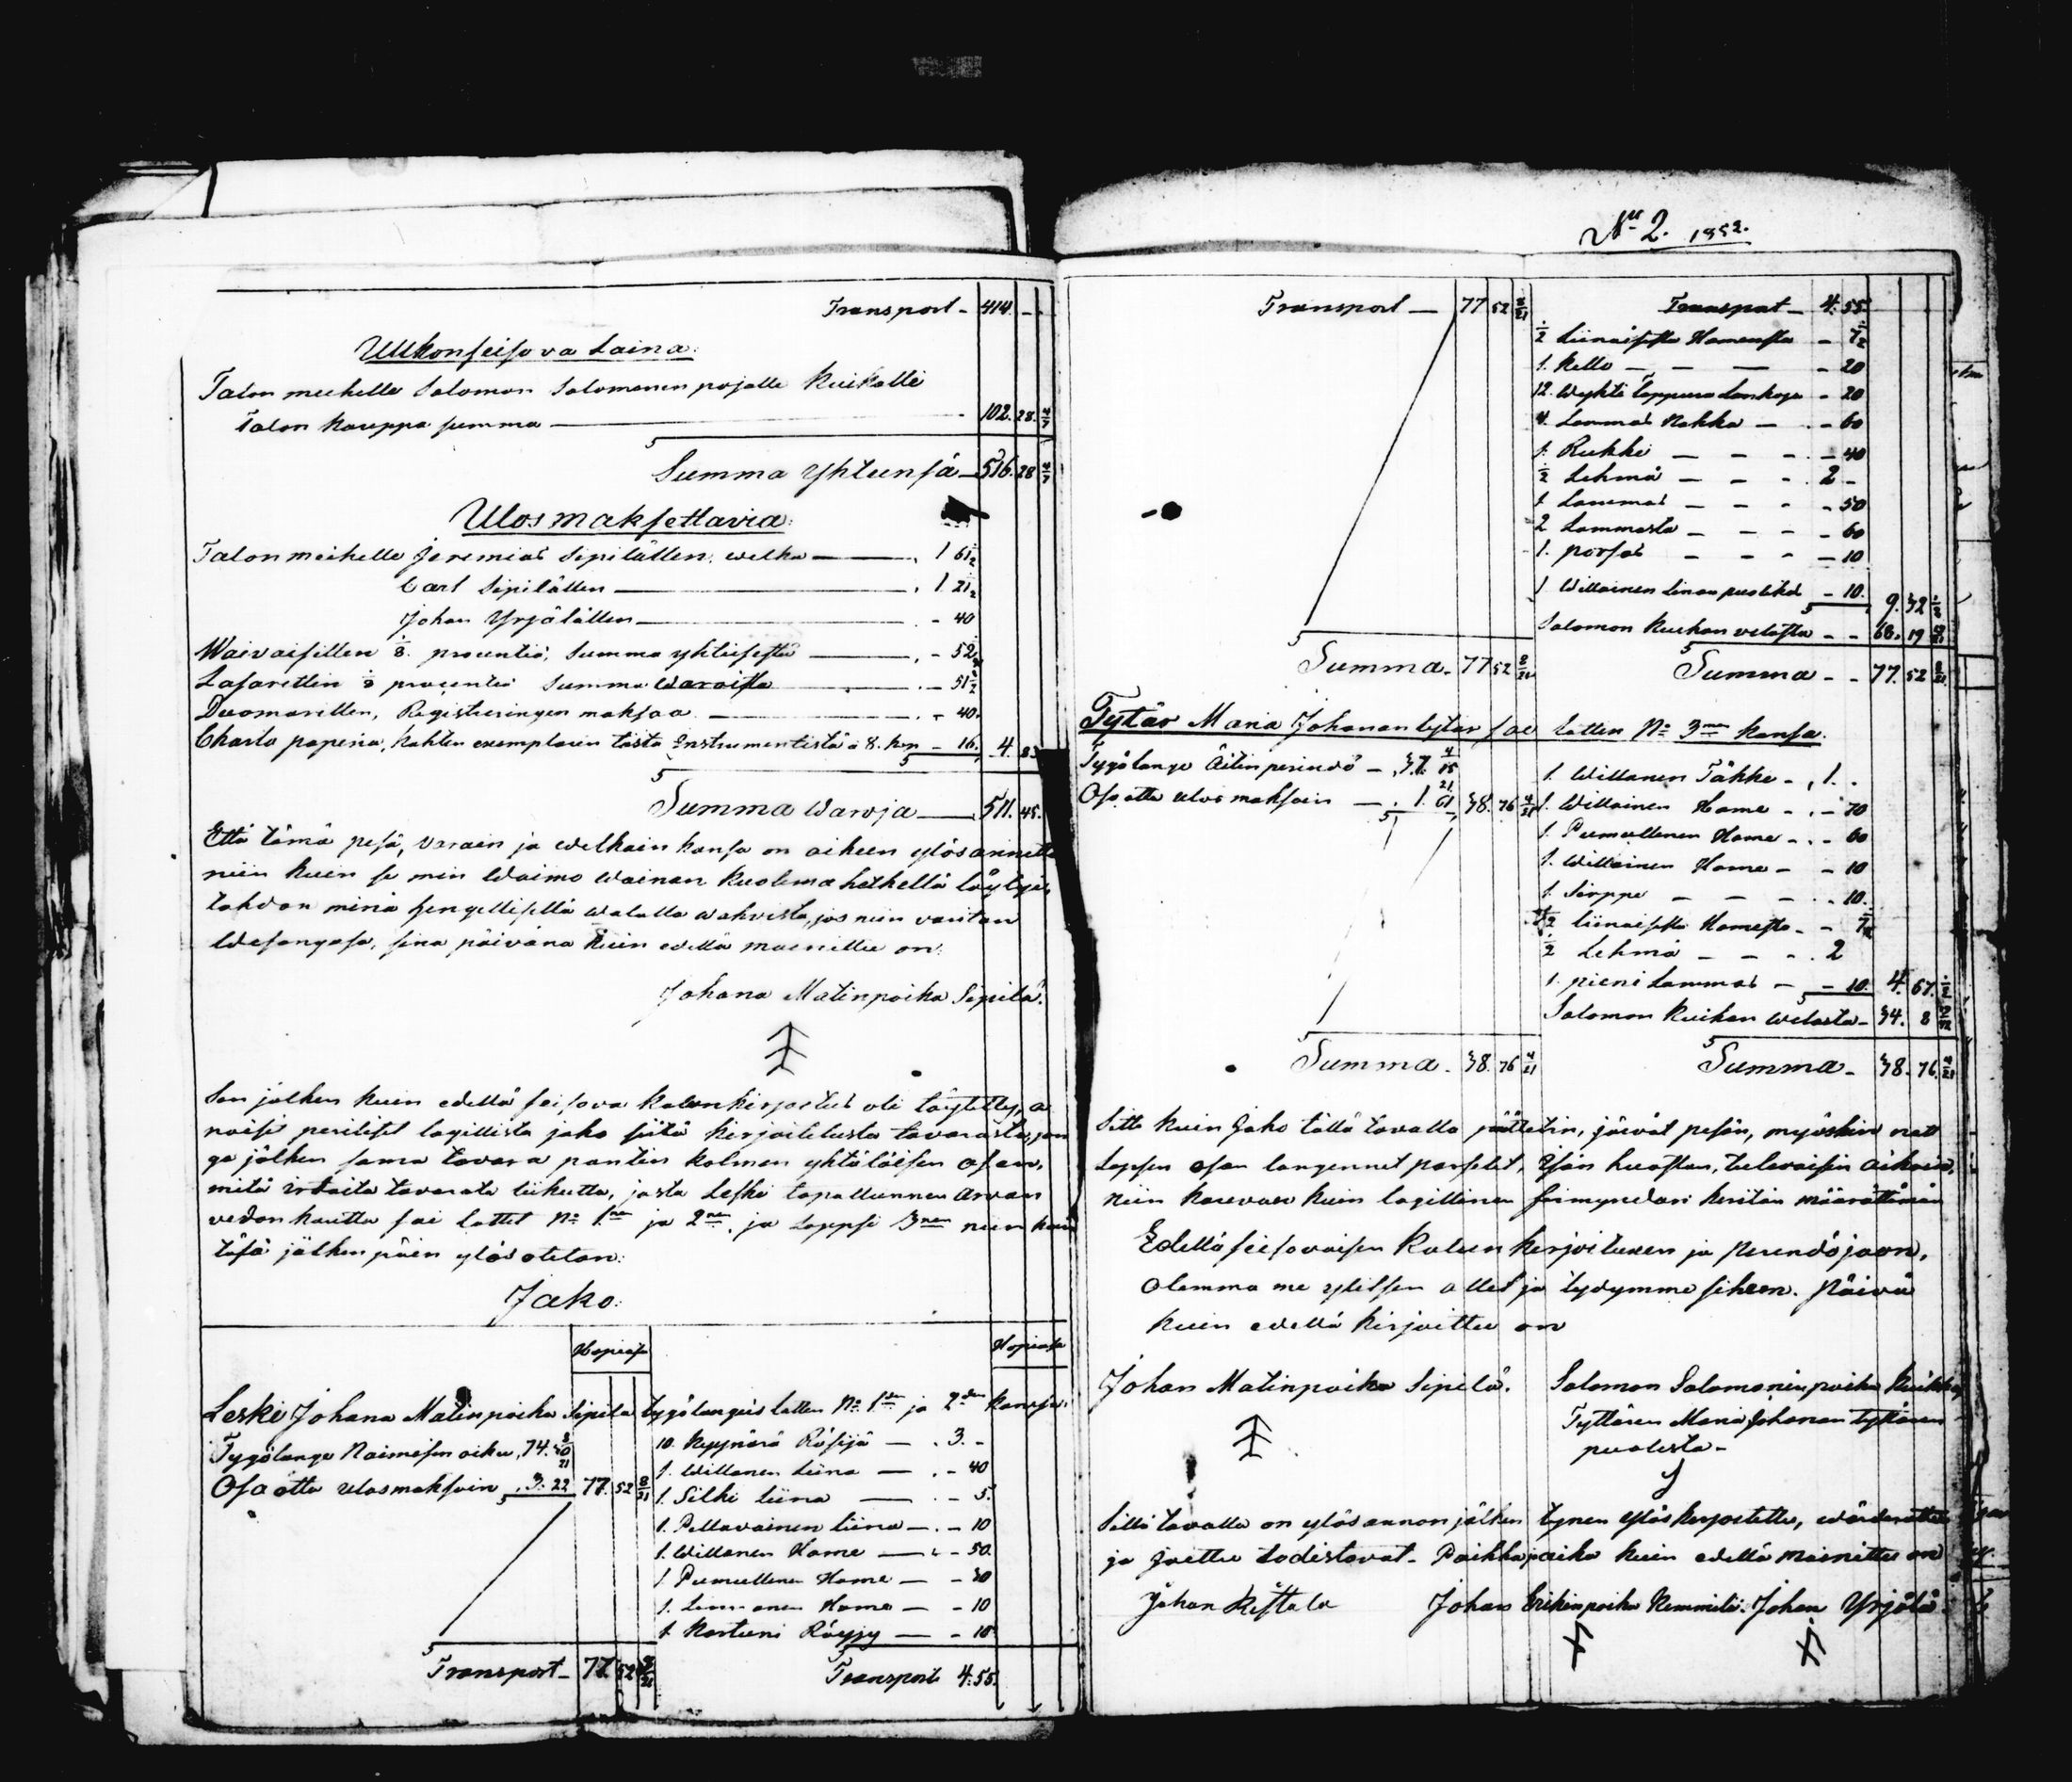 Transport - 414. - -
Ulkonseisova Laina:
Talon meehelle Salomon Salomonen pojalle Kuikalle
Talon Kauppa summa — 102. 28 4/7
Summa Yhteensä — 516. 28 4/7
Ulosmaksettavia:
Talon meehelle Jeremias Sipilällen, welka — 1 61 1/2
Carl Sipilällen — 1 21 1/2
Johan Yrjölällen — - 40
Waivaisillen 1/8 procentiä, Summa yhteisestä — - 52
Lasarettin 1/8 procentiä Summa Waroista — - 51 1/2
Duomarillen, Registreeringen maksaa — - 40.
Charta paperia, kahten exemplaren tästä Instrumentistä á 8. kop - 16. 4. 83
Summa Waroja — 511. 45.
Että tämä pesä, varain ja welkain kansa on oikeen ylösannettu
niin kuin se min Waimo Wainan Kuolema hetkellä löytyi,
tahdon minä hengellisellä walalla wahvista, jos niin vaaitan
Wesangasa, sina päivänä kuin edellä mainittu on:
Johana Matinpoika Sipilä.
Sen jälken kuin edellä seisova kalunkirjoitus oli täytetty, a
noisit perilliset lagillista jako siitä kirjoitetusta tavarasta, jon
ga jälken sama tavara pantin kolmen yhtäläisen osaan,
mitä irtaita tavarata liikutta, josta Leski tapattunnen arvan
vedon kautta sai lottit No 1ne ja 2ne. ja Lappsi 3nen niin kuin
täsä jälken päin ylösotetan:
Jako:
Hopiasa Hopiasa
Leski Johana Matinpoika Sipilä tygölangeis lotten No 1sen ja 2den kansa:
Tygölange Naimisen oikeu, 74. 30 8/21
Osa otta ulosmaksoin . 3. 22 77. 52 8/21
10. Kyynärä Räsijä — . 3. -
1. Willanen Liina — . - 40
1. Silki liina — . - 5.
1. Pellavainen liina — . - 10
1. Willanen Hame — - 50.
1. Pumullinen Hame — - 30
1. Hame — - 10
1. Kartuni Röyjy — - 10
Transport - 77. 52 8/21 Transport 4. 55.
No 2. 1852.
Transport — 77 52 8/21
Summa. 77 52 8/21
Transport — 4. 55
1/2 Liinaisesta Hameesta - 7 1/2
1. Kello — — — - 20
12. Wyhti Tappura Lankoja - 20
4. Lammas Nahka — . - 60
1. Rukki — - - . - 40
1/2 Lehmä — - - . 2 -
1 Lammas — - - - 50
2 Lammasta — - - - 60
1. porsas — - - - 10
1 Willainen Linan puolikas - 10. 9. 32 1/2
Salomon Kuikan velasta - - 68. 19
Summa - - 77. 52 8/21
Tytär Maria Johanan tytär sae lotten No 3men kansa.
Tygölange Äitin perindö — 37. 15 4/21
Osa otta ulos maksoin — . 1. 61 38. 76 4/21
Summa. 38. 76 4/21
1. Willanen Täkke - , 1. -
1. Willainen Hame - . - 70
1. Pumullenen Hame - . - 60
1. Willainen Hame - - 10
1. Sirppe — - - . - 10.
1/2 liinaisesta Hamesta - - 7 1/2
1/2 Lehmä — - - . 2
1. pieni Lammas — - 10. 4. 67. 1/2
Salomon Kuikan Welasta - 34. 8
Summa - 38. 76. 4/21
Sitte kuin Jako tällä tavalla päättetin, jäivät pesän, myöskin nett
Lapsen osan langennet parselet, Isän huostan, tulevaisin aikoin,
niin kauvan kuin lagillinen förmyndari keritän määrättämän
Edelläseisovaisen Kalun kirjoituxen ja Perindöjaon,
olemma me ylitsen ollet ja tydymme sihren. Päivä
kuin edellä kirjoittu on
Johan Matinpoika Sipelä. Salomon Salomoninpoika Kuikka,
Tyttären Maria Johanan tyttären
puolesta -
Sillä tavalla on ylösannon jälken tynen Ylöskirjoitettu, wärderattu
ja Jaettu todistavat. Paikka, aika kuin edellä mainittu on
Johan Kiss­tala Johan Erikinpoika Kemmilä. Johan Yrjölä